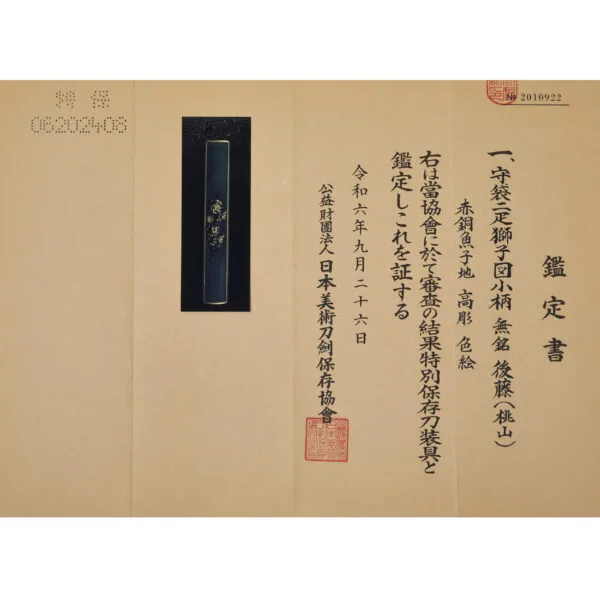 № 2010922
鑑定書
一、守袋二疋獅子図小柄 無銘 後藤(桃山)
赤銅魚子地 高彫 色絵
右は當協會に於て審査の結果特別保存刀装具と
鑑定しこれを証する
令和六年九月二十六日
公益財團法人 日本美術刀劍保存協會
特保
06202408